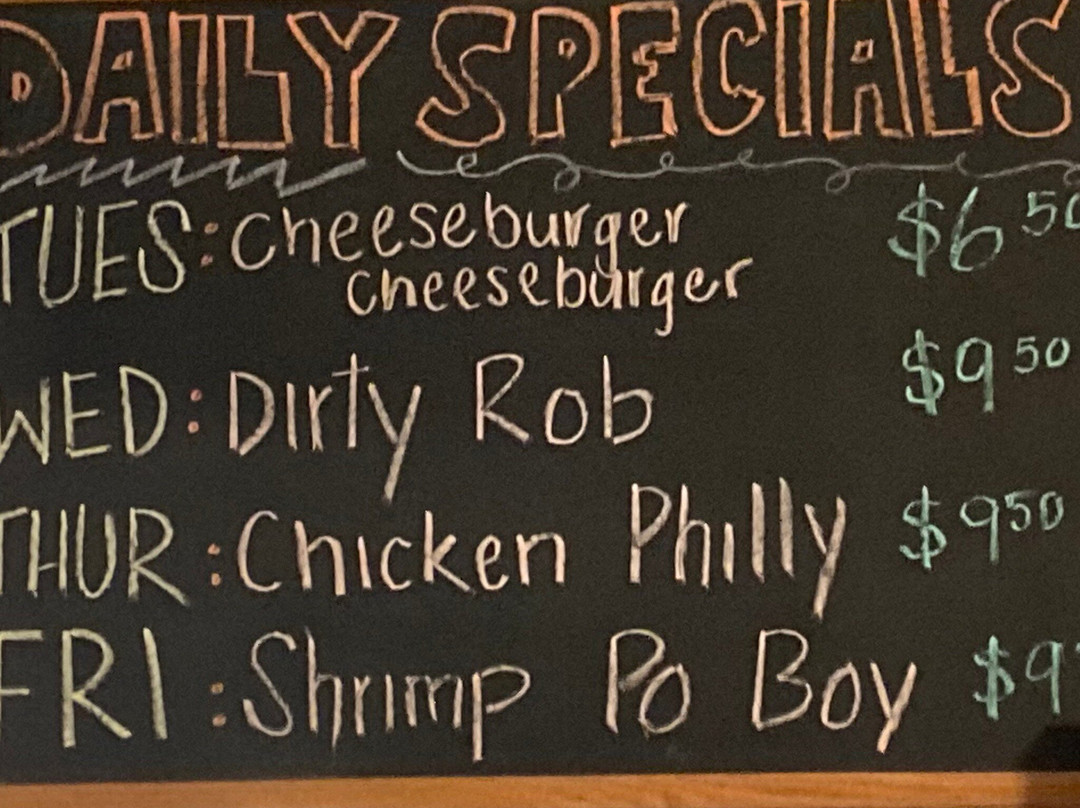 DAILY SPECIALS
TUES: Cheeseburger $6 50
cheeseburger
WED: Dirty Rob $9 50
THUR: Chicken Philly $9 50
FRI: Shrimp Po Boy $9